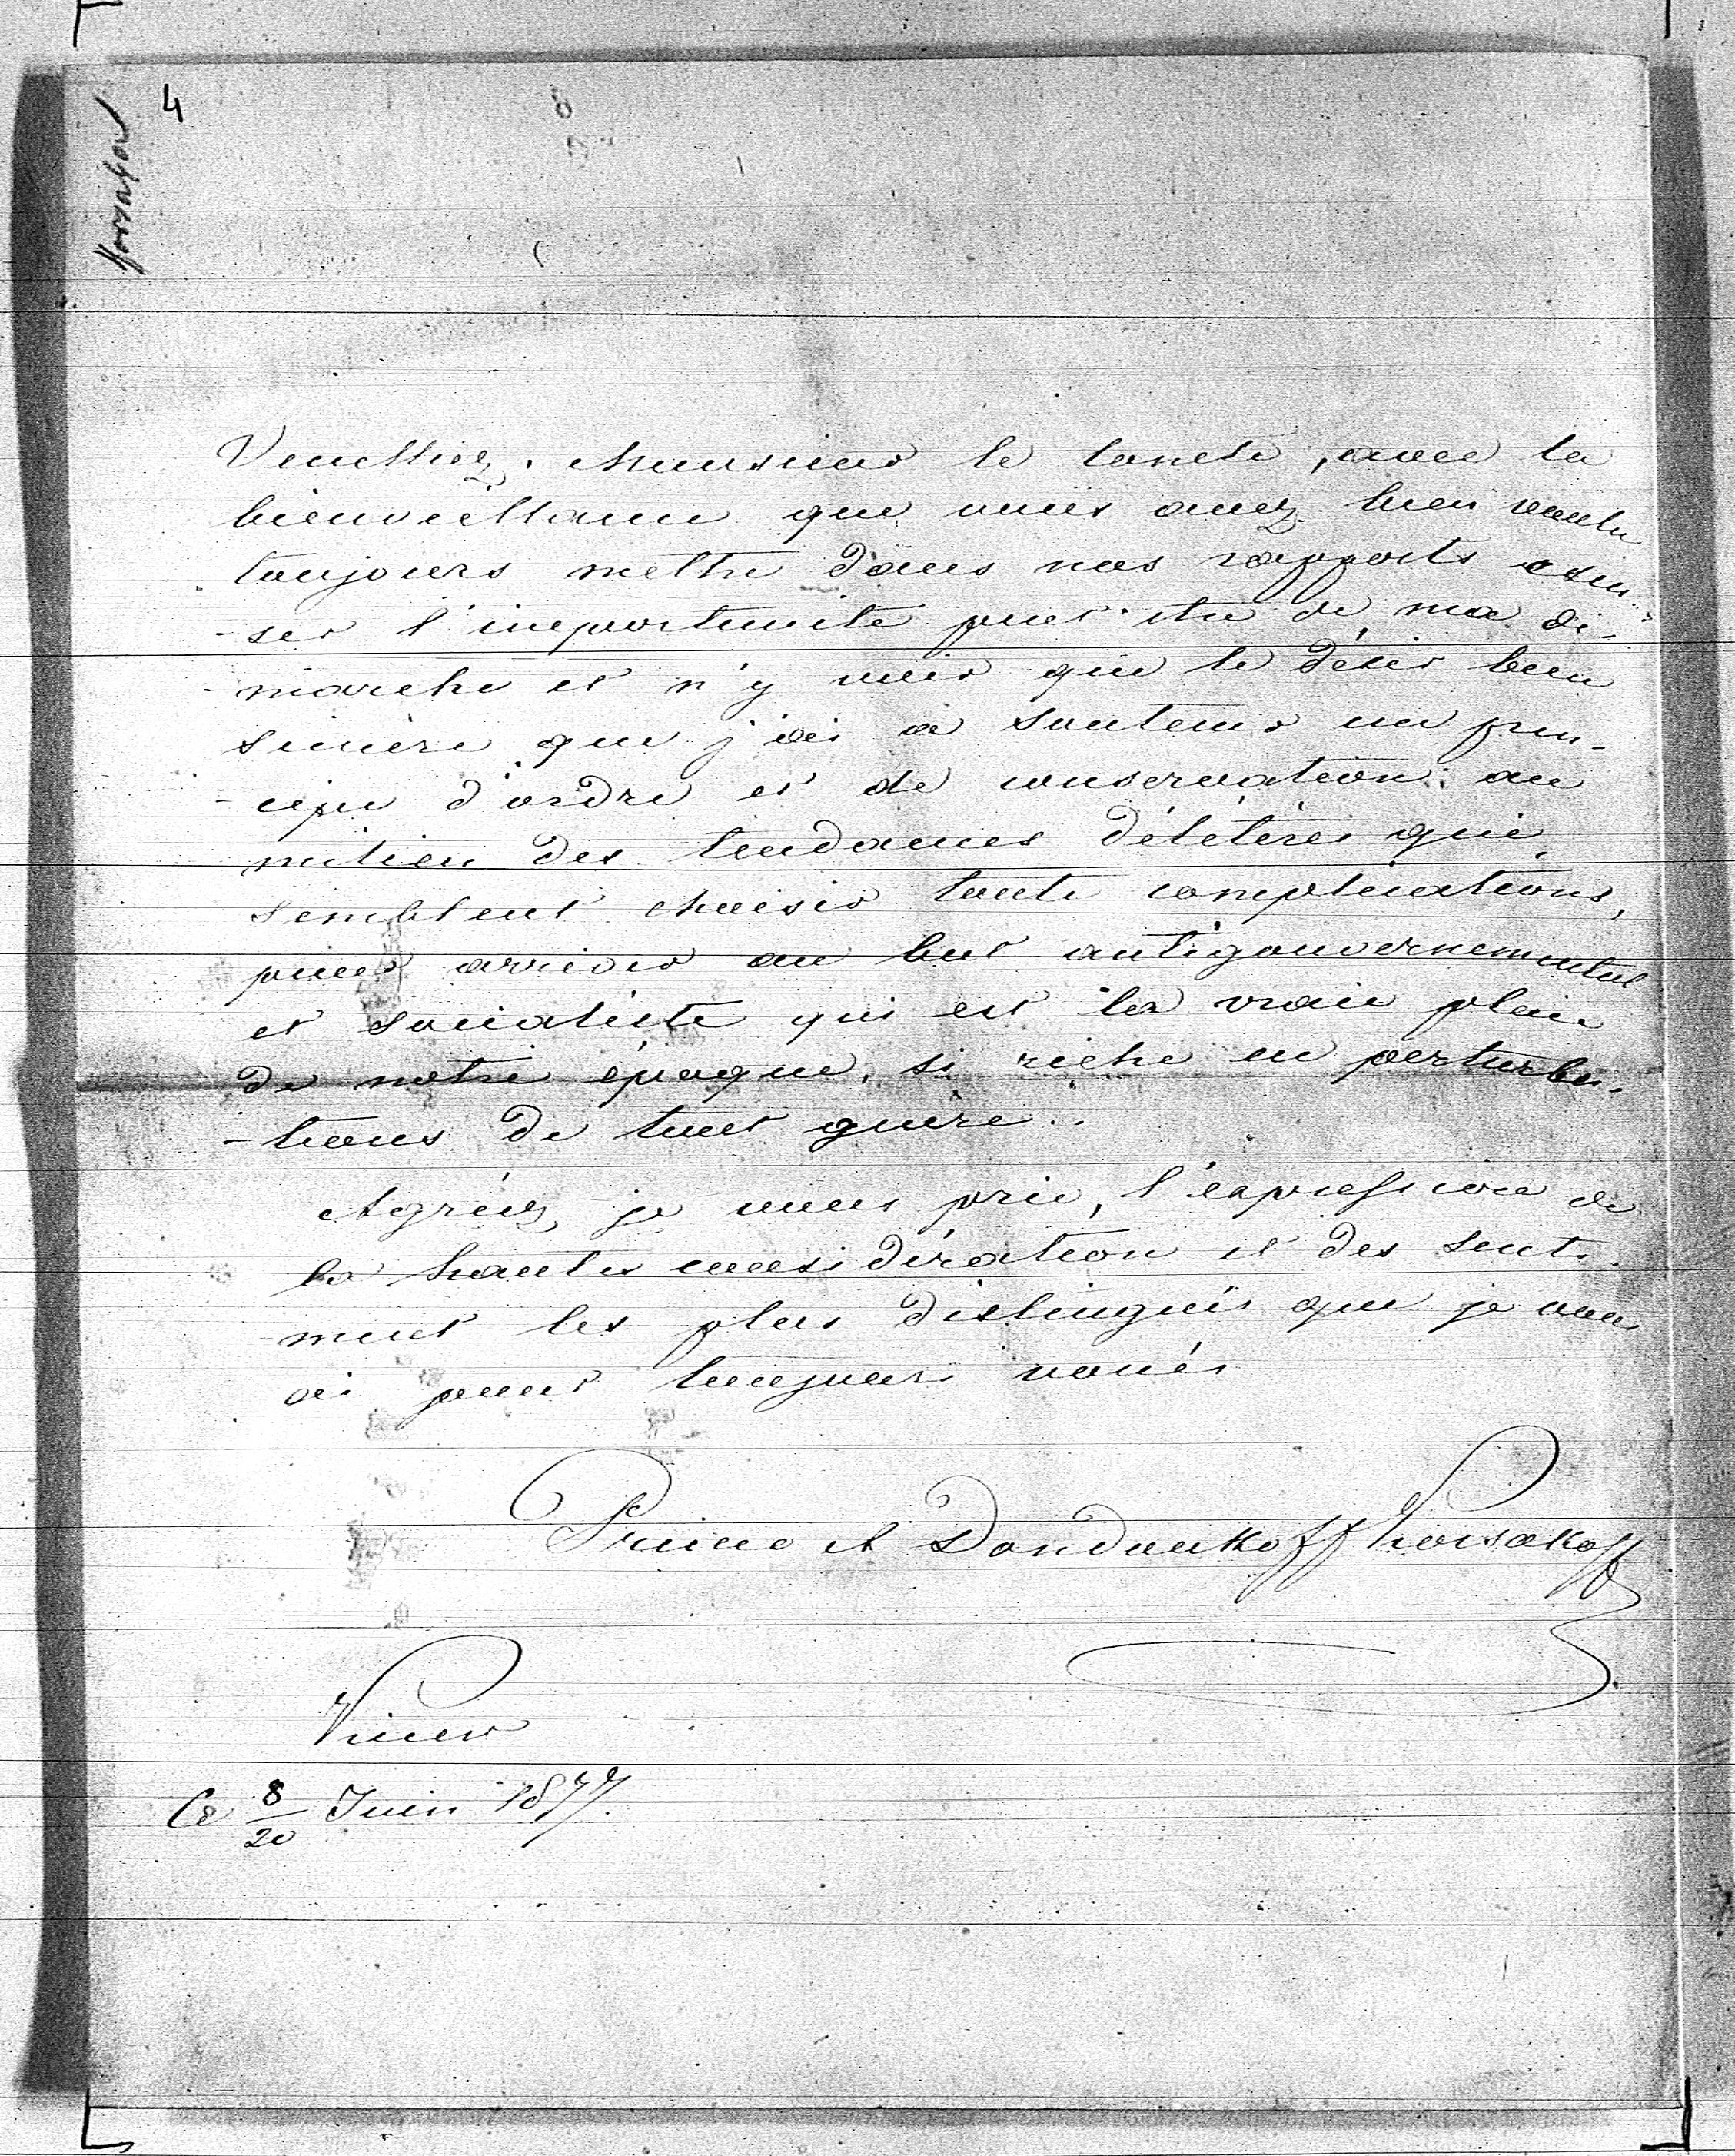 4
Korsakow
Veuilliez, Monsieur le Comte, avec la
bienveillance que vous avez bien voulu
toujours mettre dans nos rapports excu-
-ser l'inoportunité peut être de ma dé-
-marche et n'y voir que le désir bien
sincère que j'ai à soutenir un prin-
-cipe d'ordre et de conservation au
milieu des tendances délétères qui,
semblent choisir toute complications,
pour arriver au but antigouvernemental
et socialiste qui est la vraie plaie
de notre époque, si riche en perturba-
-tions de tout genre..
Agréez, je vous prie, l'expression de
la haute considération et des senti
-ment les plus distingués que je vous
ai pour toujours voués
Prince A Dondoukoff Korsakoff
Kiew
Ce 8/20 Juin 1877.